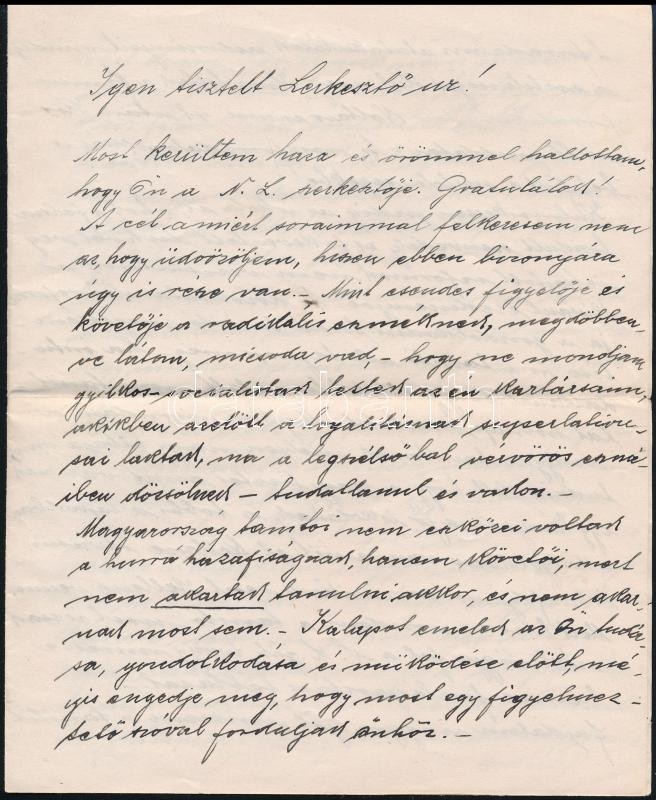 Igen tisztelt Szerkesztő ur!
Most kerültem haza és örömmel hallottam,
hogy Ön a N. L. szerkesztője. Gratulálok!
A cél amiért soraimmal felkeresem nem
az, hogy üdvözöljem, hiszen ebben bizonyára
úgy is része van. – Mint csendes figyelője és
követője a radikális eszméknek, megdöbben-
ve látom, micsoda vad, – hogy ne mondjam
gyilkos – socialisták lettek azon kartársaim,
akikben azelőtt a loyalitásnak superlativu-
sai laktak, ma a legszélső bal vérvörös eszmé-
iben dőzsölnek – tudatlanul és vadon. –
Magyarország tanitói nem eszközei voltak
a hurrá hazafiságnak, hanem követői, mert
nem akartak tanulni akkor, és nem akar-
nak most sem. – Kalapot emelek az Ön tudá-
sa, gondolkodása és müködése előtt, mé-
gis engedje meg, hogy most egy figyelmez-
tető szóval forduljak Önhöz. –